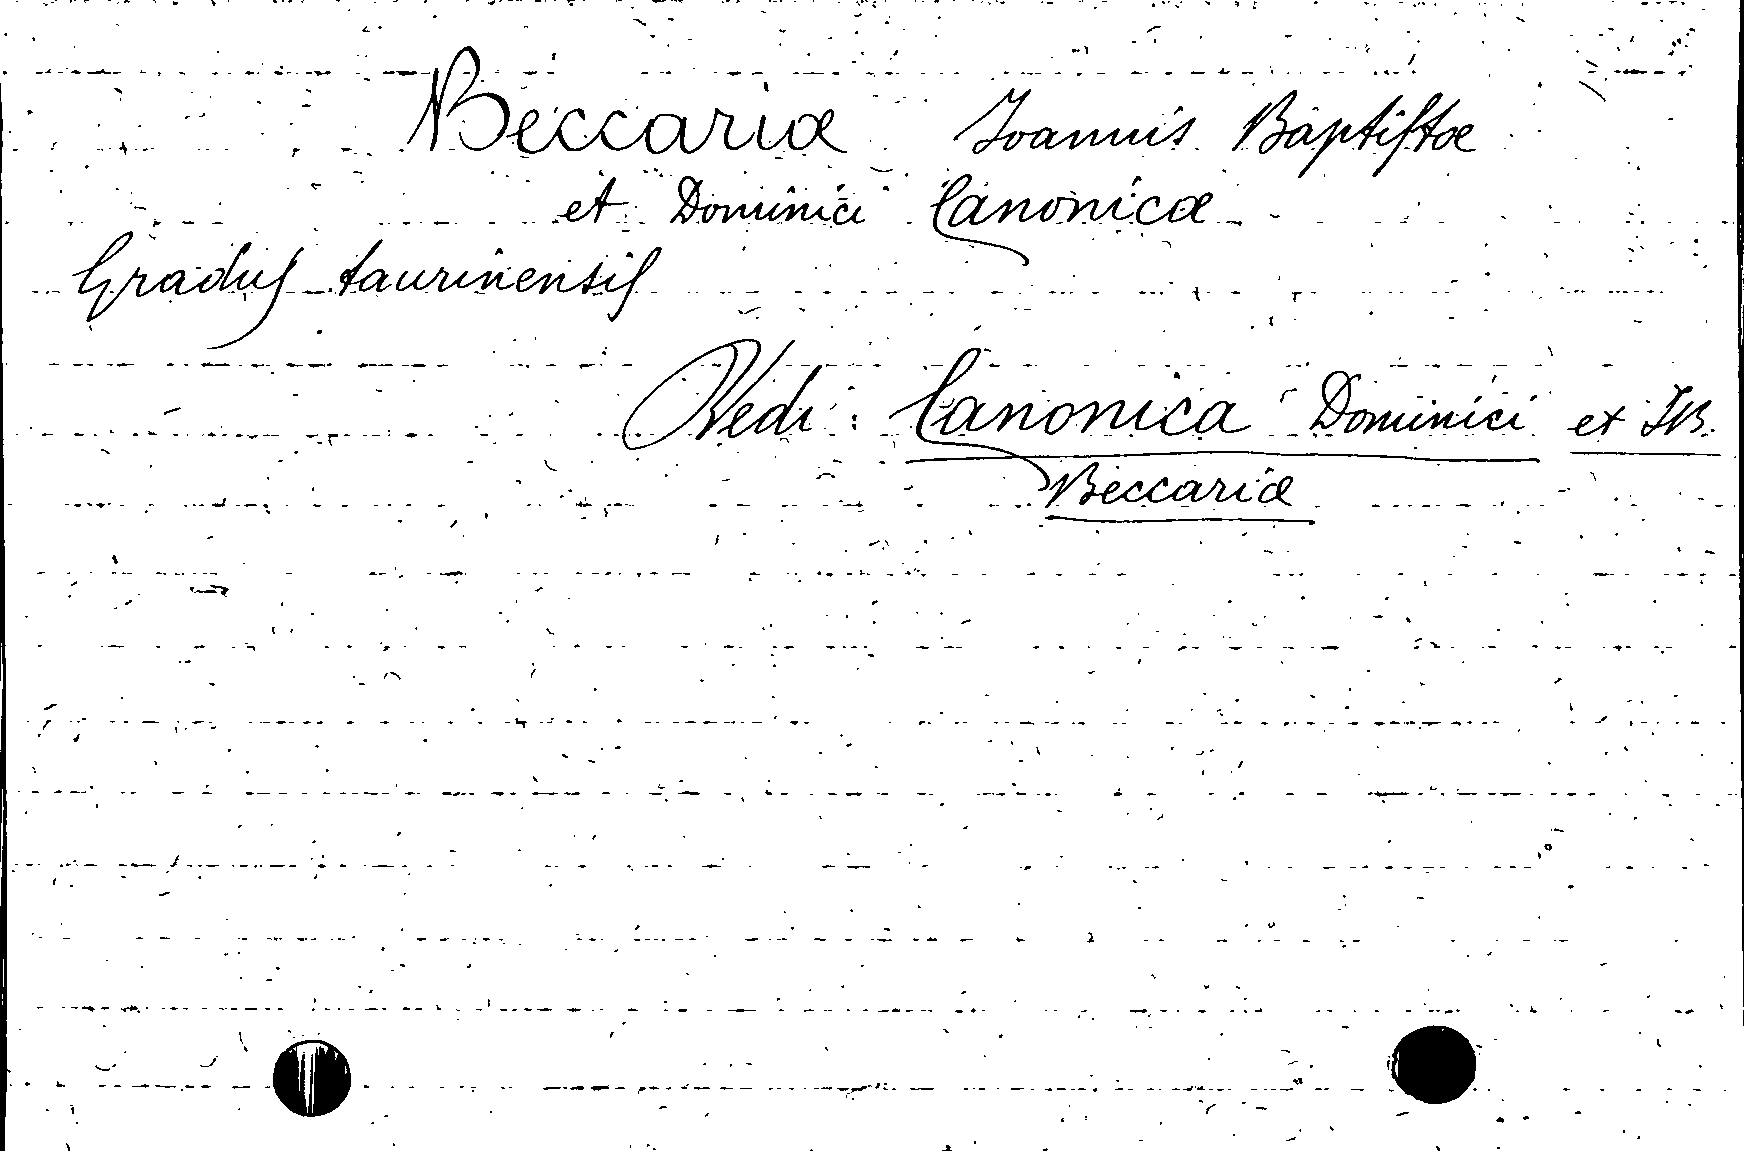 Beccariæ Joannis Baptiſtæ
et Dominici Canonicæ
Graduſ taurinensiſ
Vedi: Canonica Dominici et JB.
Beccariæ